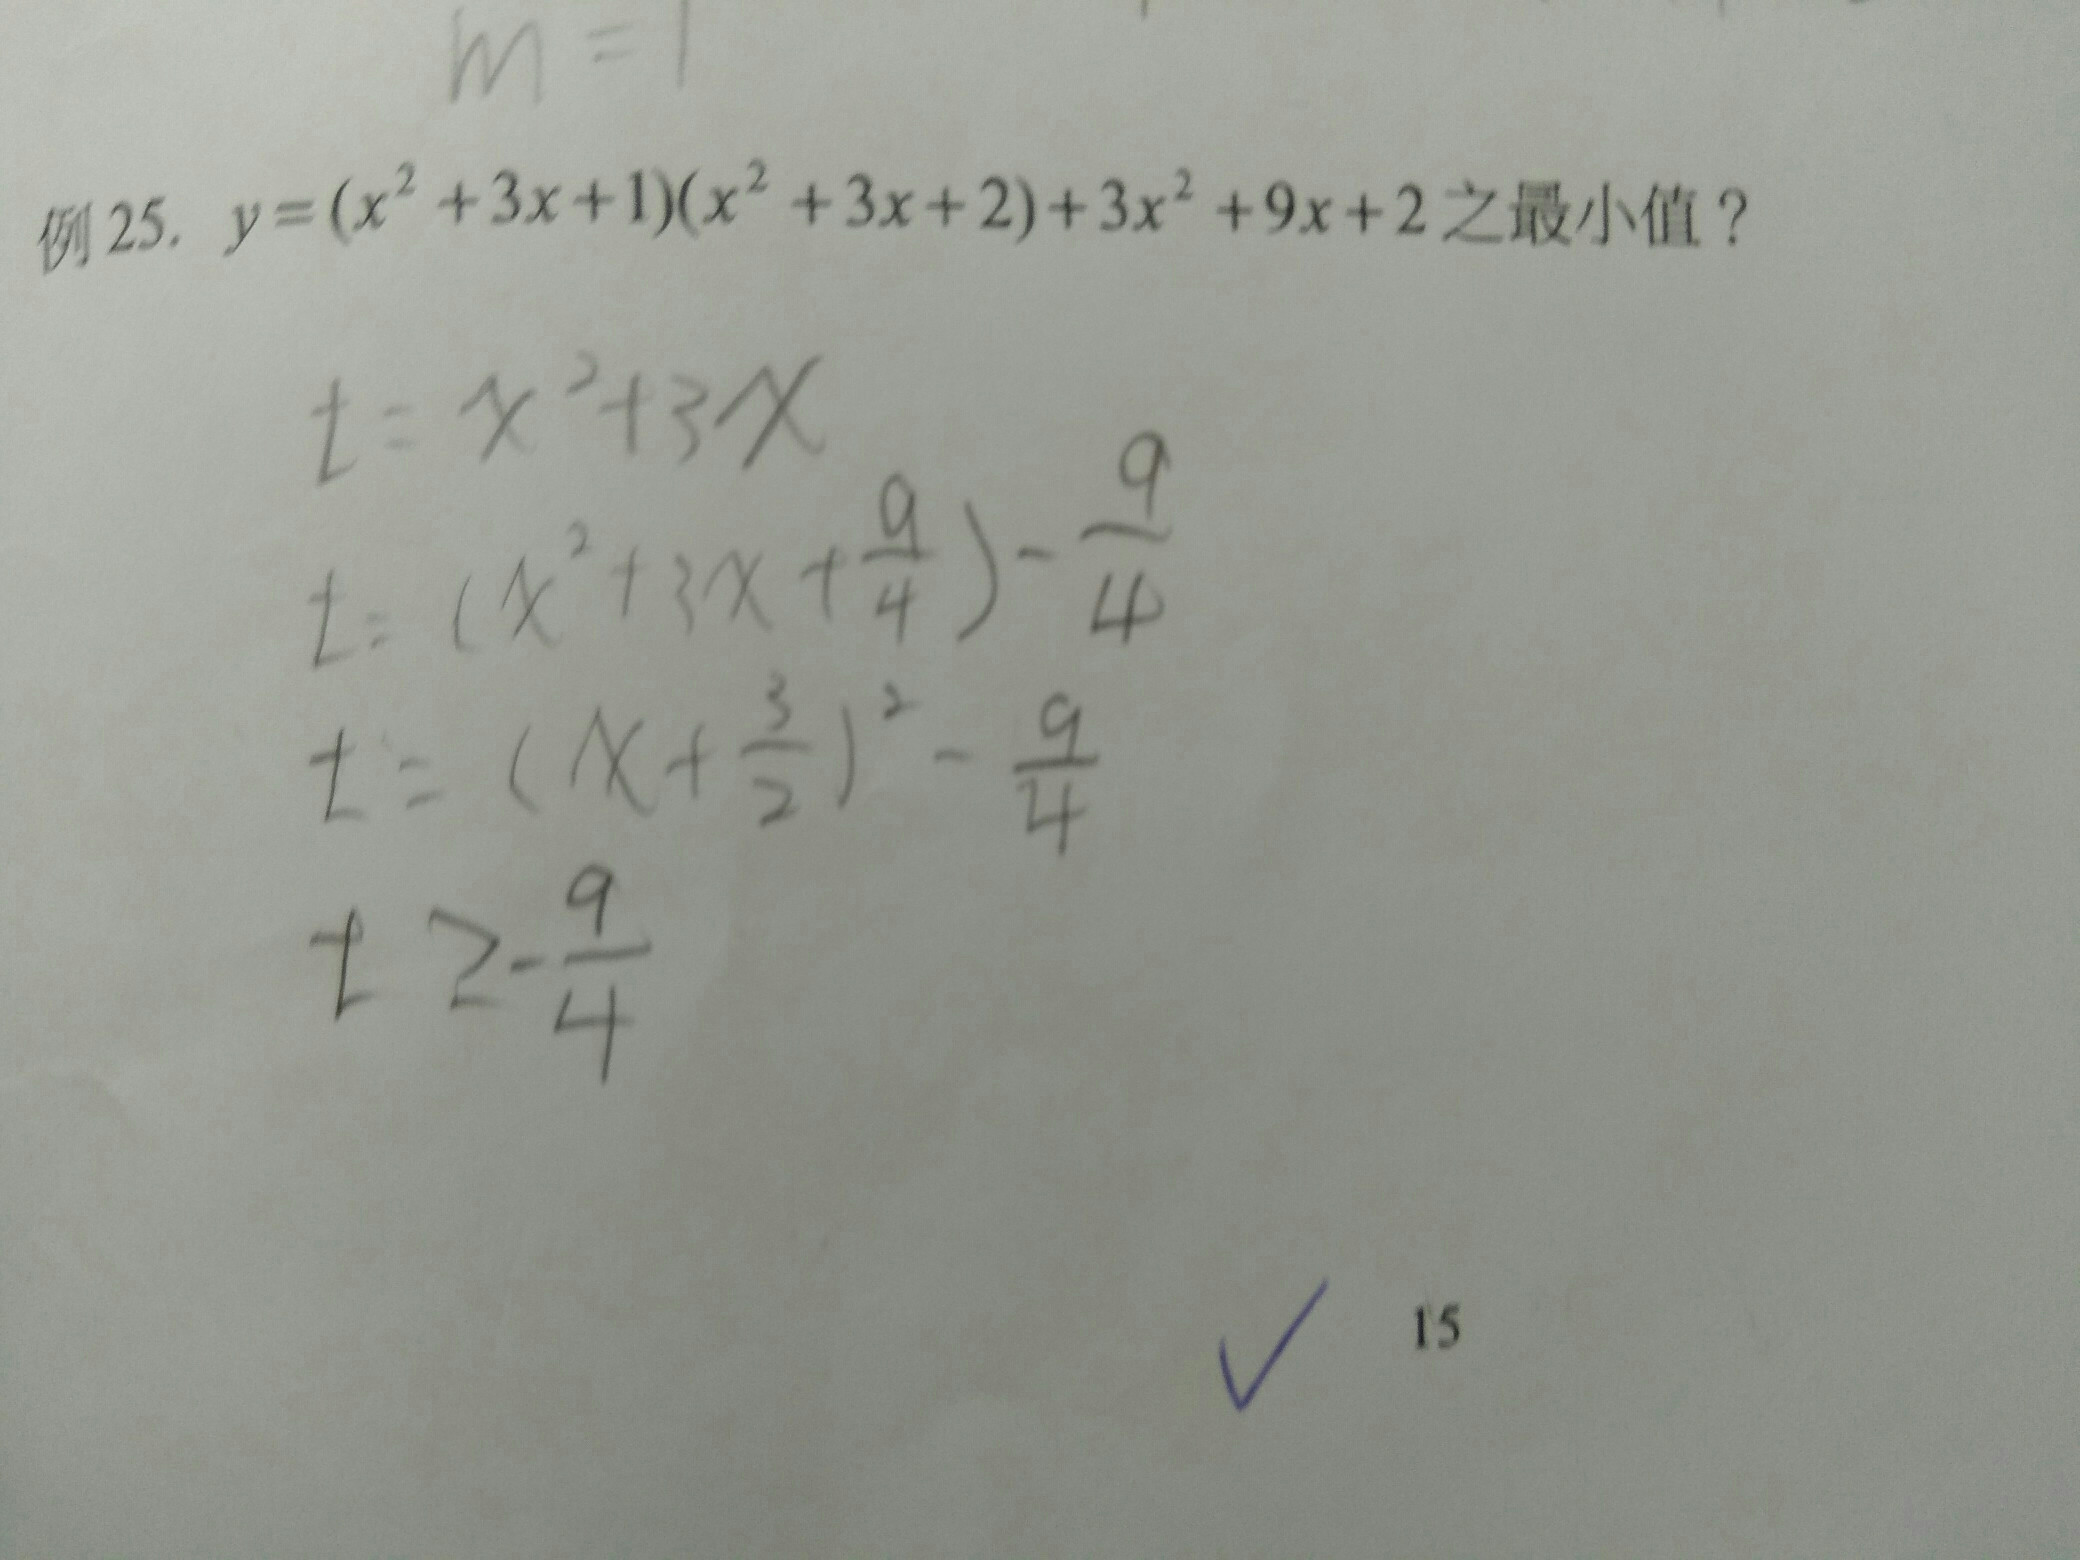 m = 1
例 25. y = (x² + 3x + 1)(x² + 3x + 2) + 3x² + 9x + 2 之最小值？
t = x² + 3x
t = (x² + 3x + 9/4) - 9/4
t = (x + 3/2)² - 9/4
t ≥ -9/4
✓ 15